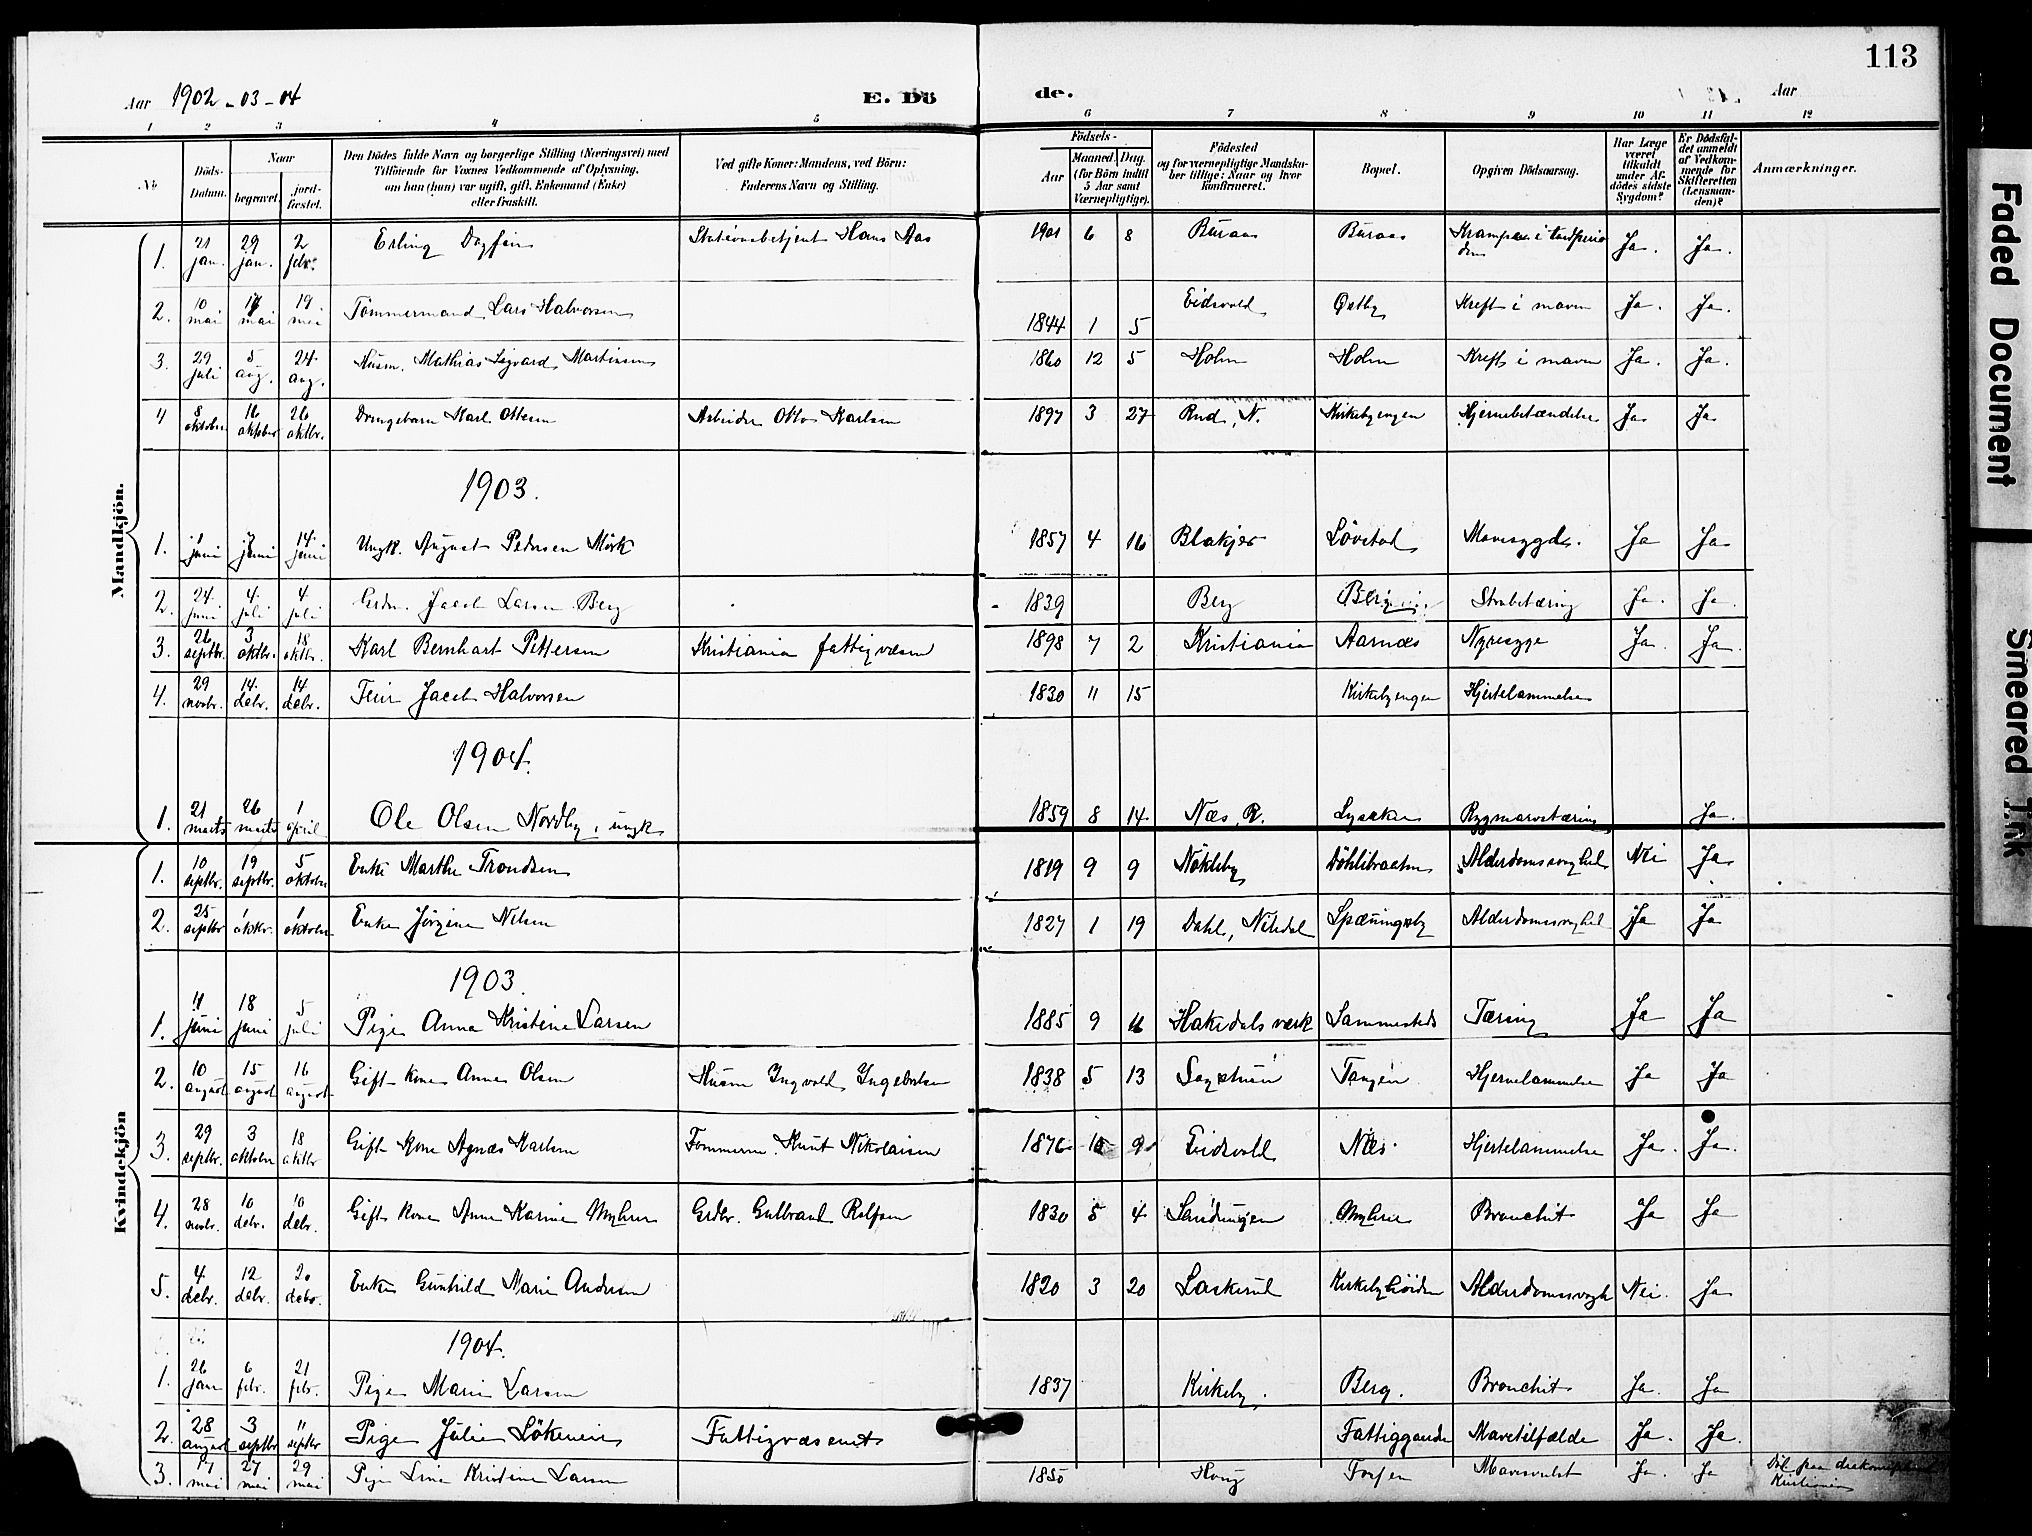 113
Aar 1902-03-04 E. Dö de. Aar
1 2 3 4 5 6 7 8 9 10 11 12
No Döds-Datum. Naar begravet. jord-fæstet. Den Dödes fulde Navn og borgerlige Stilling (Næringsvei) med Tilföiende for Voxnes Vedkommende af Oplysning, om han (hun) var ugift, gift, Enkemand (Enke) eller fraskilt. Ved gifte Koner: Mandens, ved Börn: Faderens Navn og Stilling. Födsels- Aar Maaned. Dag. (for Börn indtil 5 Aar samt Værnepligtige). Födested og for værnepligtige Mandskaber tillige: Naar og hvor konfirmeret. Bopæl. Opgiven Dödsaarsag. Har Læge været tilkaldt under Afdödes sidste Sygdom? Er Dödsfaldet anmeldt af Vedkommende for Skifteretten (Lensmanden)? Anmærkninger.
Mandkjön.
1. 21 jan. 29 jan. 2 febr. Erling Dagfin Stationsbetjent Hans Aas 1901 6 8 Buraas Buraas Krampe i tandperioden Ja. Ja.
2. 10 mai 17 mai 19 mai Tömmermand Lars Halvorsen 1844 1 5 Eidsvold Østby Kreft i maven Ja. Ja.
3. 29 juli 5 aug. 24 aug. Husm. Mathias Sigvard Martinsen 1860 12 5 Holm Holm Kreft i maven Ja. Ja.
4 8 oktober 16 oktober 26 oktbr. Drengebarn Karl Ottesen Arbeider Otto Karlsen 1897 3 27 Rud, N. Kirkebyengen Hjernebetændelse Ja Ja
1903.
1. 1 juni 7 juni 14 juni Ungk. August Pedersen Mörk 1857 4 16 Blakjer Lövstad Mavesygd. Ja Ja
2. 24 juni 4 juli 4 juli Grdm. Jacob Larsen Berg 1839 Berg Berg Strubetæring Ja. Ja.
3. 26 septbr. 3 oktbr. 18 oktbr. Karl Bernhart Pettersen Kristiania fattigvæsen 1898 7 2 Kristiania Aarnæs Nyresyge Ja. Ja.
4. 29 novbr. 14 debr. 14 debr. Jacob Halvorsen 1830 11 15 Kirkebyengen Hjertelammelse
1904.
1. 21 marts 26 marts 1 april Ole Olsen Nordby, ungk. 1859 8 14 Næs, R. Lysaker Rygmarvstæring Ja.
Kvindekjön
1. 10 septbr. 19 septbr. 5 oktober Enke Marthe Trondsen 1819 9 9 Nökleby Döhlibraaten Alderdomssvaghed Nei Ja.
2. 25 septbr 1 oktbr. 1 oktober Enke Jörgine Nilsen 1827 1 19 Dahl, Nitedal Spæningsby Alderdomssvaghed Ja Ja
1903.
1. 11 juni 18 juni 5 juli Pige Anna Kristine Larsen 1885 9 16 Hakedals værk Sammesteds Tæring Ja Ja
2. 10 august 15 august 16 august Gift kone Anne Olsen Husm Ingvald Ingebretsen 1838 5 13 Sagstuen Tangen Hjernelammelse Ja Ja
3. 29 septbr. 3 oktober 18 oktbr Gift kone Agnæs Karlsen Tömmerm. Knut Nikolaisen 1876 9 Eidsvold Næs Hjertelammelse Ja. Ja.
4. 28 novbr. 10 debr. 10 debr. Gift kone Anne Karine Myhrer Grdbr. Gulbrand Rolfsen 1830 5 4 Sandungen Myhrer Bronchit Ja Ja
5. 4 debr. 12 debr. 20 debr. Enke Gunhild Marie Andersen 1820 3 20 Laskerud Kirkebyhöiden Alderdomssvagh Nei. Ja
1904.
1. 26 jan 6 febr. 21 febr. Pige Marie Larsen 1837 Kirkeby. Berg. Bronchit Ja. Ja
2. 28 august 3 septbr 11 septbr Pige Julie Lökeneie Fattigvæsenet Fattiggaarden Mavetilfælde Ja. Ja.
3. 17 mai 27 mai 29 mai Pige Lina Kristine Larsen 1850 Haug Torpen Mavesvulst Ja. Ja Död paa Kristiania
Faded Document
Smeared Ink